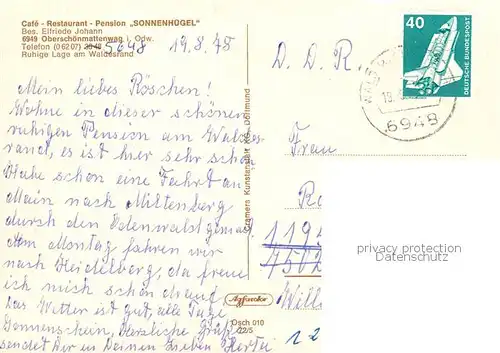 Café - Restaurant - Pension „SONNENHÜGEL"
Bes. Elfriede Johann
6949 Oberschönmattenwag i. Odw.
Telefon (0 62 07) 5648
Ruhige Lage am Waldesrand
19.8.78
Mein liebes Röschen!
Wohne in dieser schönen
ruhigen Pension am Waldes-
rand, es ist hier sehr schön
Habe schon eine Fahrt an
Main nach Miltenberg
durch den Odenwalst gemal.
Am Montag fahren wir
nach Heidelberg, da freue
ich mich schon drauf
Das Wetter ist gut, alle Tage
Sonnenschein, Herzliche Grüße
sendet Dir in
Cramers Kunstanstalt KG. Dortmund
Agfacolor
Osch 010
22/5
D. D. R.
40
DEUTSCHE BUNDESPOST
WALD
6948
Frau
Ro
119
7502
Will
12
privacy protection
Datenschutz